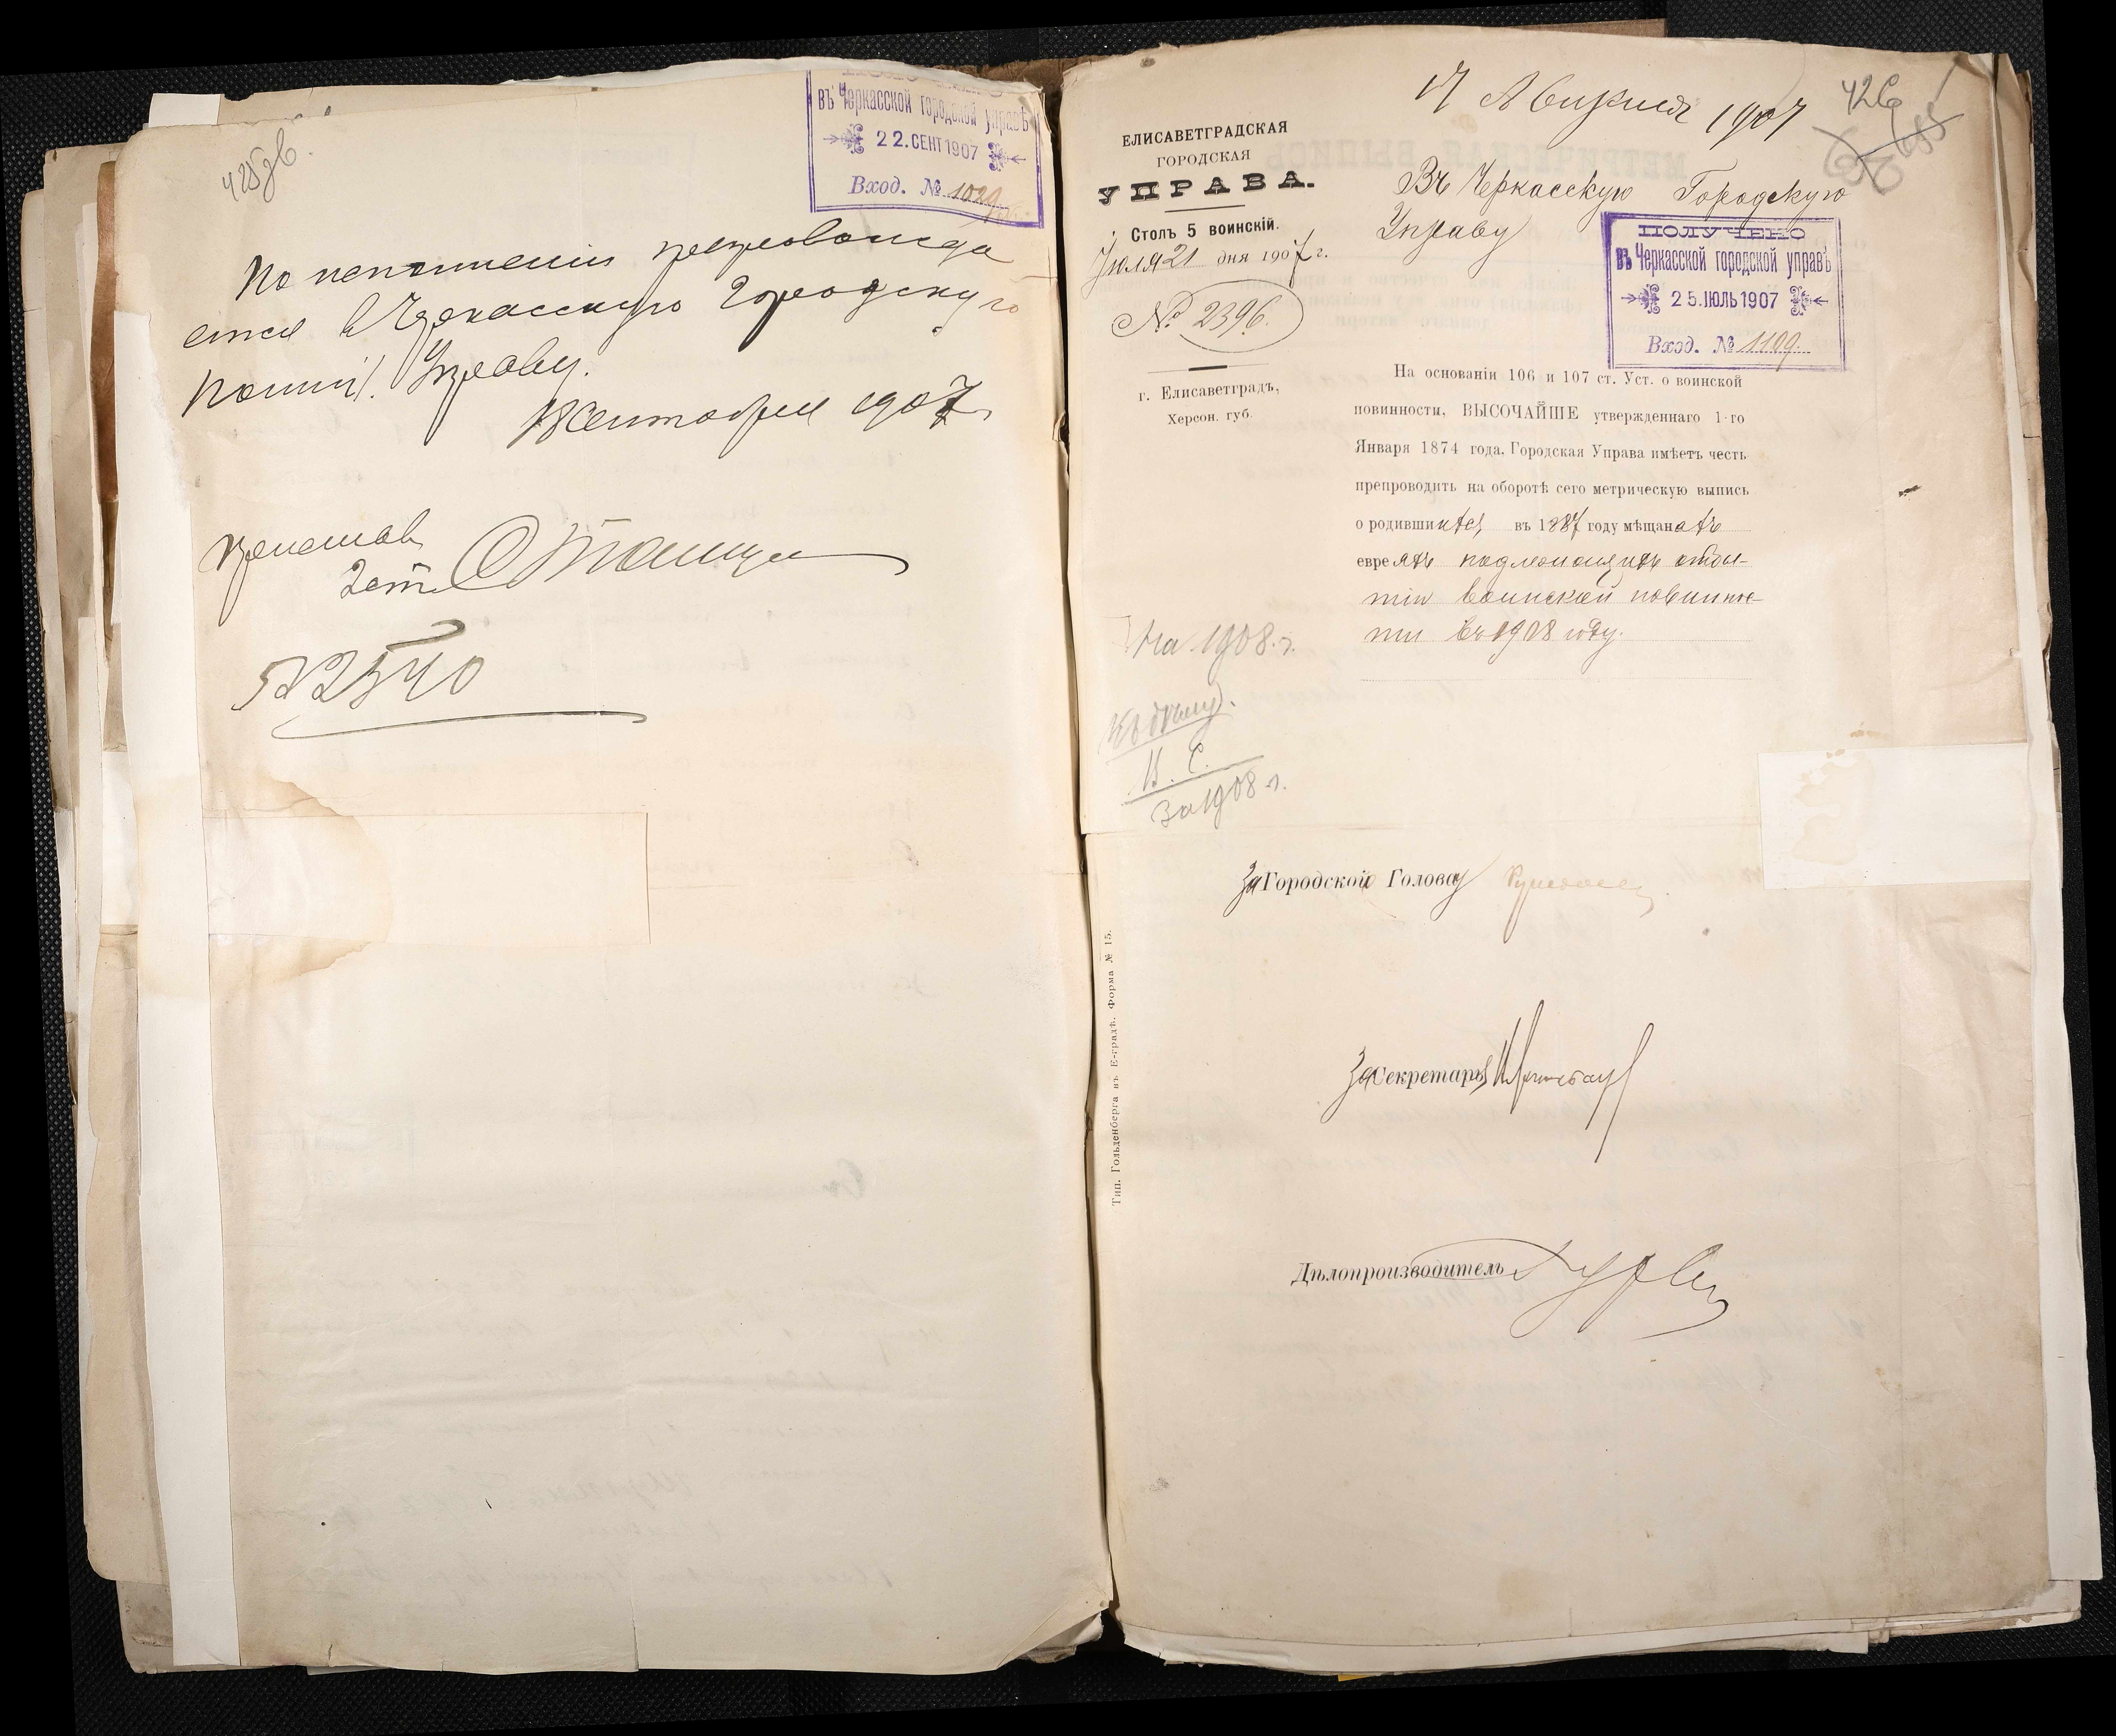 425зв.
въ Черкасской городской управѣ
22. СЕНТ 1907
Вход. № 1029
По исполнении препровожда
ется в Черкасскую Городскую
Управу.
18 Сентября 1907
Пристав
№ 2540
17 Августа 1907
426
ЕЛИСАВЕТГРАДСКАЯ
ГОРОДСКАЯ
УПРАВА.
Столъ 5 воинскій.
Іюля 21 дня 1907 г.
№ 2396.
г. Елисаветградъ,
Херсон. губ.
Въ Черкасскую Городскую
Управу
ПОЛУЧЕНО
въ Черкасской городской управѣ
25. ІЮЛЬ 1907
Вход. № 1109.
На основаніи 106 и 107 ст. Уст. о воинской
повинности, ВЫСОЧАЙШЕ утвержденнаго 1-го
Января 1874 года, Городская Управа имѣетъ честь
препроводить на оборотѣ сего метрическую выпись
о родившихся, въ 1887 году мѣщанахъ
евреяхъ подлежащихъ отбы-
тію воинской повинно-
ти въ 1908 году.
На 1908 г.
Къ дѣлу.
за 1908 г.
За Городского Голову
За Секретаря
Дѣлопроизводитель
Тип. Гольденберга въ Е-градѣ. Форма № 15.